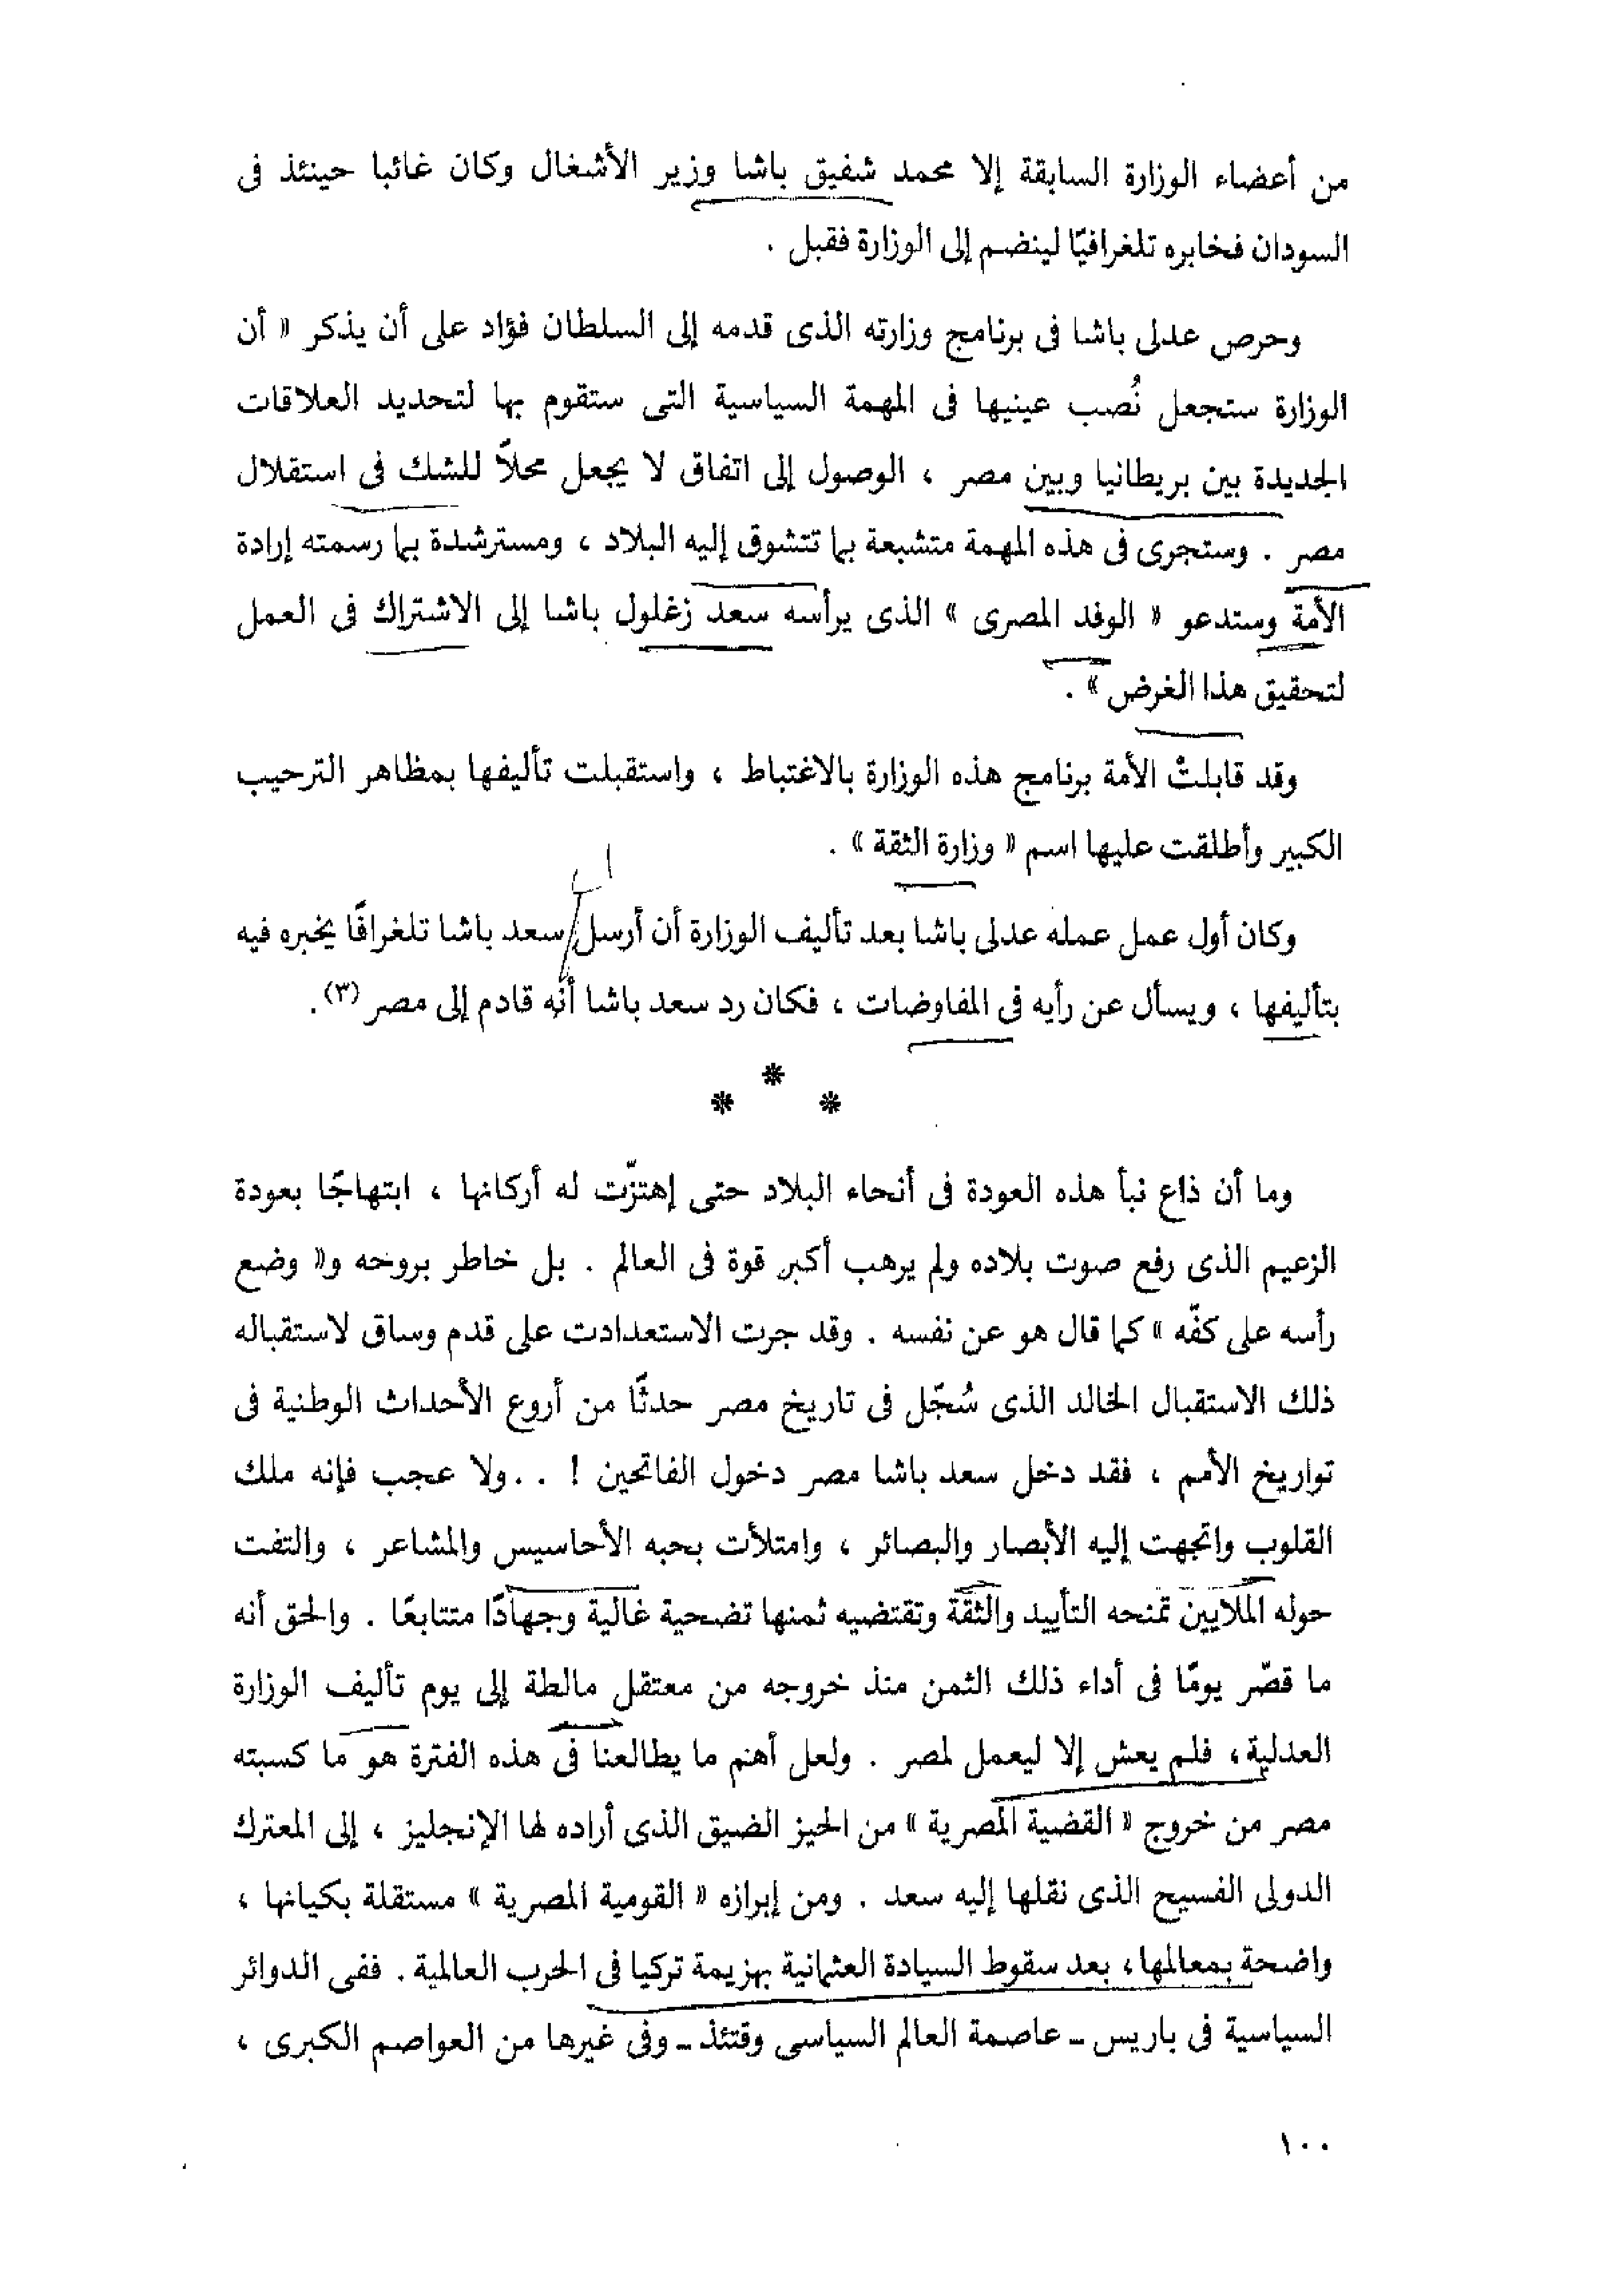 من أعضاء الوزارة السابقة إلا محمد شفيق باشا وزير الأشغال وكان غائبا حينئذ فى
السودان فخابره تلغرافيًا لينضم إلى الوزارة فقبل .
وحرص عدلى باشا فى برنامج وزارته الذى قدمه إلى السلطان فؤاد على أن يذكر « أن
الوزارة ستجعل نُصب عينيها فى المهمة السياسية التى ستقوم بها لتحديد العلاقات
الجديدة بين بريطانيا وبين مصر ، الوصول إلى اتفاق لا يجعل محلاً للشك فى استقلال
مصر . وستجرى فى هذه المهمة متشبعة بما تتشوق إليه البلاد ، ومسترشدة بما رسمته إرادة
الأمة وستدعو « الوفد المصرى » الذى يرأسه سعد زغلول باشا إلى الاشتراك فى العمل
لتحقيق هذا الغرض » .
وقد قابلتْ الأمة برنامج هذه الوزارة بالاغتباط ، واستقبلت تأليفها بمظاهر الترحيب
الكبير وأطلقت عليها اسم « وزارة الثقة » .
وكان أول عمل عمله عدلى باشا بعد تأليف الوزارة أن أرسل سعد باشا تلغرافًا يخبره فيه
بتأليفها ، ويسأل عن رأيه فى المفاوضات ، فكان رد سعد باشا أنه قادم إلى مصر (٣) .
*
* *
وما أن ذاع نبأ هذه العودة فى أنحاء البلاد حتى إهتزّت له أركانها ، ابتهاجًا بعودة
الزعيم الذى رفع صوت بلاده ولم يرهب أكبر قوة فى العالم . بل خاطر بروحه و« وضع
رأسه على كفّه » كما قال هو عن نفسه . وقد جرت الاستعدادت على قدم وساق لاستقباله
ذلك الاستقبال الخالد الذى سُجّل فى تاريخ مصر حدثًا من أروع الأحداث الوطنية فى
تواريخ الأمم ، فقد دخل سعد باشا مصر دخول الفاتحين ! . . ولا عجب فإنه ملك
القلوب واتجهت إليه الأبصار والبصائر ، وامتلأت بحبه الأحاسيس والمشاعر ، والتفت
حوله الملايين تمنحه التأييد والثقة وتقتضيه ثمنها تضحية غالية وجهادًا متتابعًا . والحق أنه
ما قصّر يومًا فى أداء ذلك الثمن منذ خروجه من معتقل مالطة إلى يوم تأليف الوزارة
العدلية ، فلم يعش إلا ليعمل لمصر . ولعل أهم ما يطالعنا فى هذه الفترة هو ما كسبته
مصر من خروج « القضية المصرية » من الحيز الضيق الذى أراده لها الإنجليز ، إلى المعترك
الدولى الفسيح الذى نقلها إليه سعد . ومن إبرازه « القومية المصرية » مستقلة بكيانها ،
واضحة بمعالمها ، بعد سقوط السيادة العثمانية بهزيمة تركيا فى الحرب العالمية . ففى الدوائر
السياسية فى باريس ــ عاصمة العالم السياسى وقتئذ ــ وفى غيرها من العواصم الكبرى ،
١٠٠